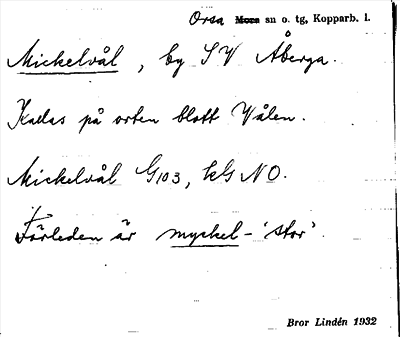 Orsa Mora sn o. tg, Kopparb. l.
Mickelvål, by SV Åberga.
Kallas på orten blott Vålen.
Mickelvål G103, kG NO.
Förleden är myckel- 'stor'.
Bror Lindén 1932